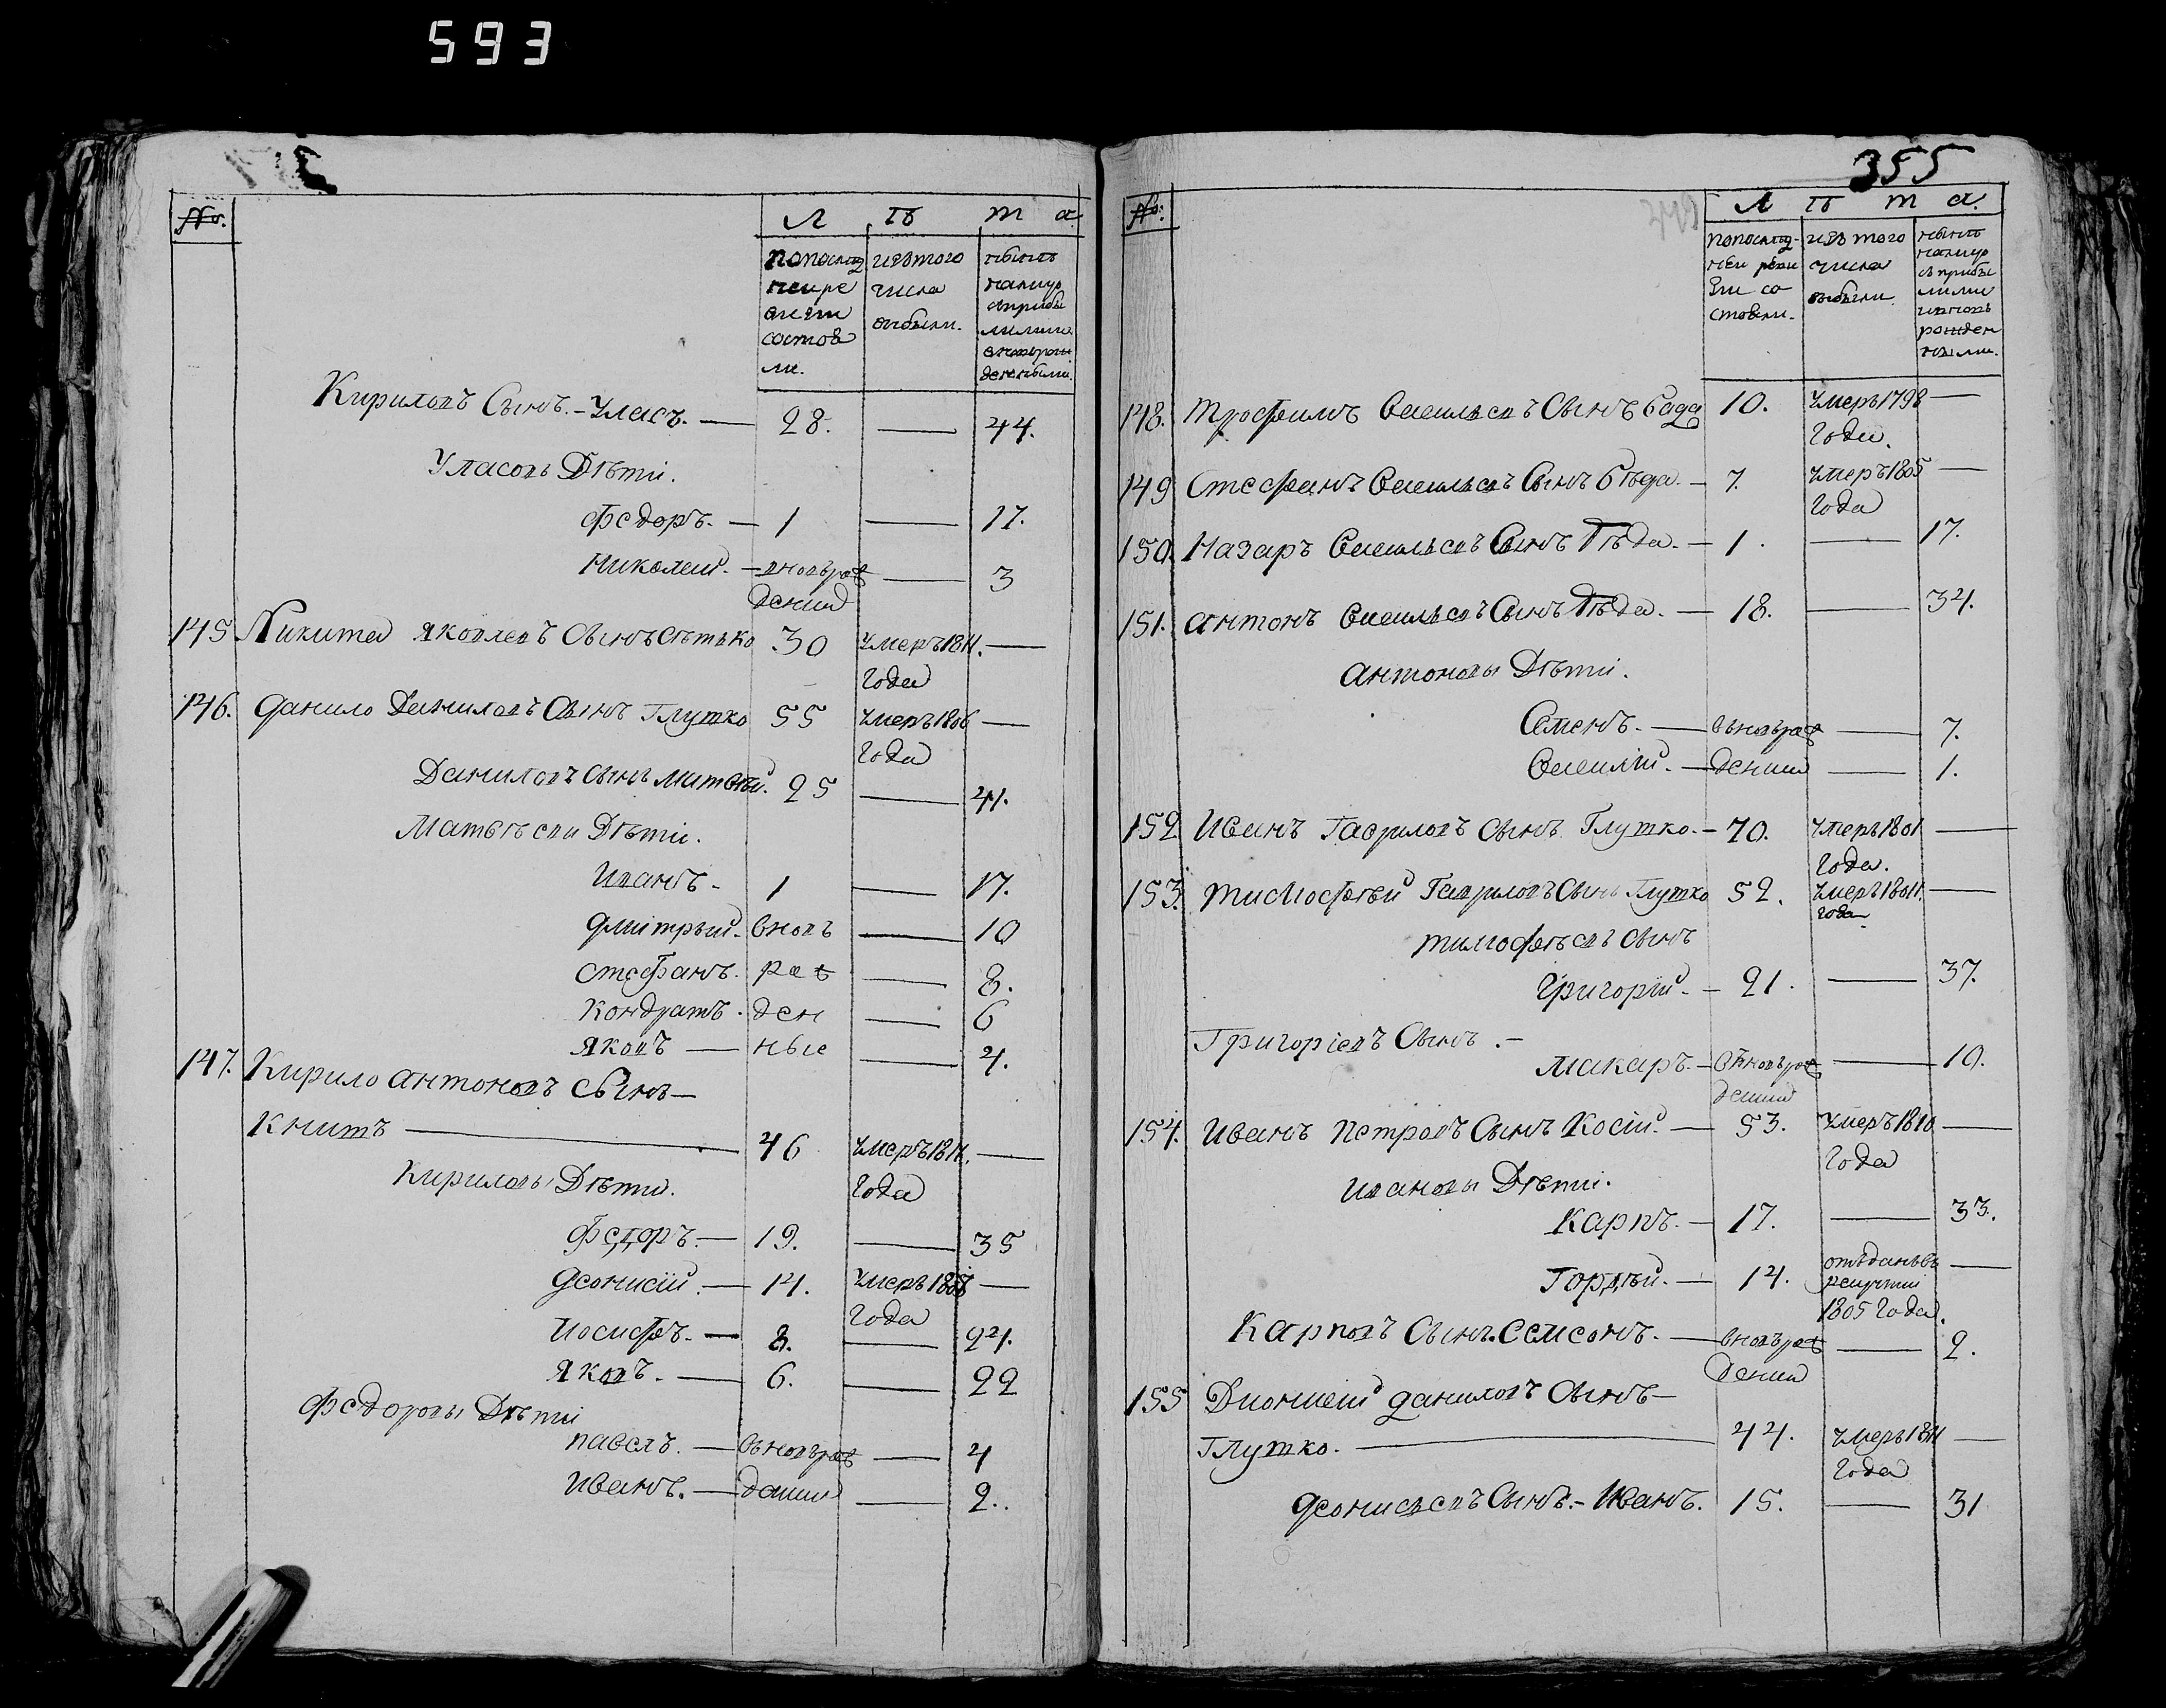 593
№: Л ѣ т а
попослед нейре визiи состоя ли.
изътого числа выбыли.
ныне налицо
Кириловъ Сынъ.-Уласъ. — 28. — 44.
Уласовы Дѣти.
Федоръ. — 1 — 17.
Николай. — вновърож — 3
дений
145 Никита Яковлевъ Сынъ 30 умеръ1811. —
года
146. Данило Даниловъ Сынъ Глутко 55 умеръ1806 —
года
Даниловъ сынъ Матвѣй. 25 — 41.
Матвѣевы Дѣти.
Иванъ - 1 — 17.
Дмитрый. вновъ — 10
Стефанъ. рож — 8.
Кондратъ. ден — 6
Яковъ — ные — 4.
147. Кирило Антоновъ Сынъ —
Книтъ — 46 умеръ1811. —
Кириловы Дѣти. года
Федоръ. — 19. — 35
Деонисiй. — 14. умеръ1808 —
года
Иосифъ. — 8. — 24.
Яковъ. — 6. — 22
Федоровы Дѣти
Павелъ. — вновърож — 4
Иванъ. — дений — 2.
355
№: Л ѣ т а.
попослед- ней реви зiи со стояли.
изъ того числа выбыли.
ныне налицо съ прибы лыми ивновь рожден ными.
148. Трофимъ Васильевъ Сынъ 10. умеръ1798 —
года.
149 Стефанъ Васильевъ Сынъ — 7. умеръ1805 —
года
150. Назаръ Васильевъ Сынъ — 1. — 17.
151. Антонъ Васильевъ Сынъ — 18. — 34.
Антоновы Дѣти.
Семенъ. — вновърож — 7.
Василiй. — дений — 1.
152 Иванъ Гавриловъ Сынъ Глутко. — 70. умеръ1801 —
года.
153. Тимофѣй Гавриловъ Сынъ Глутко 52. умеръ1811. —
года
Тимофѣевъ Сынъ
Григорiй. — 21. — 37.
Григорiевъ Сынъ. —
Макаръ. — вновърож — 10.
дений
154. Иванъ Петровъ Сынъ Косiй. — 53. умеръ1810 —
года
Ивановы Дѣти.
Карпъ. — 17. — 33.
Гордѣй. — 14. отъданъвъ —
рекруты
1805 года.
Карповъ Сынъ. Семсонъ. — вновърож — 2.
дений
155 Дионисiй Даниловъ Сынъ —
Глутко. — 44. умеръ1811 —
года
Деонисьевъ Сынъ. - Иванъ. 15. — 31